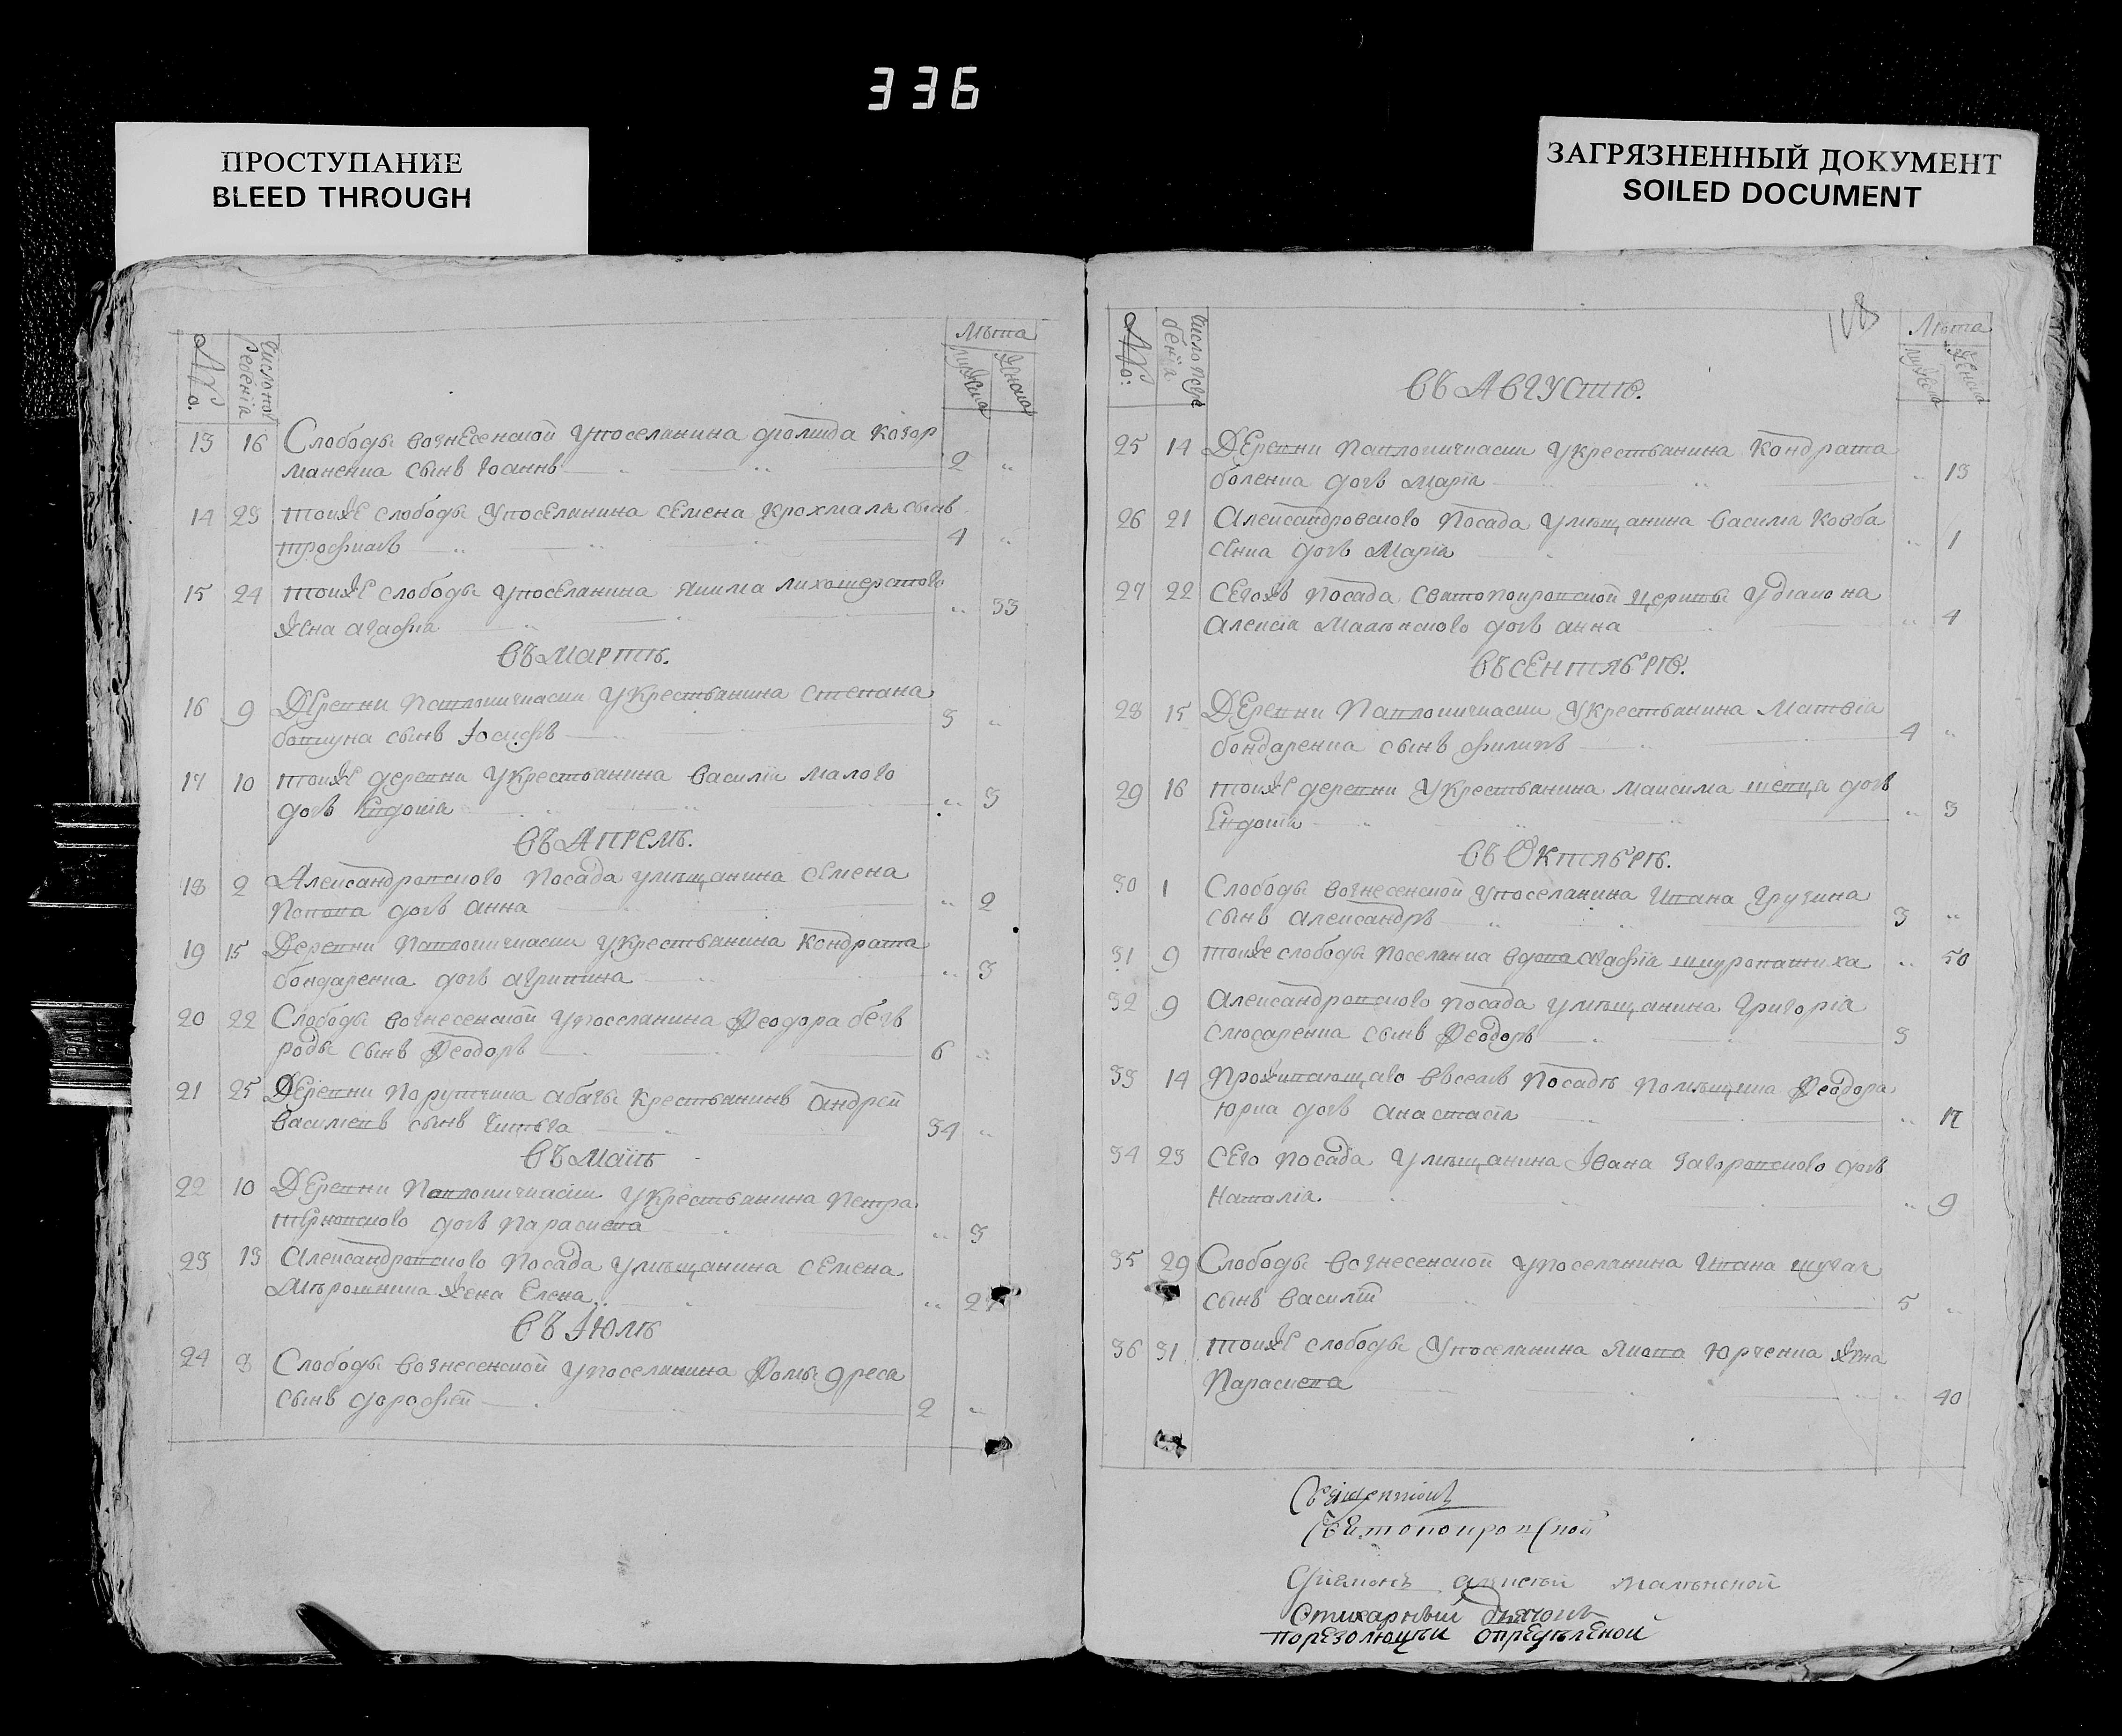 336
ПРОСТУПАНИЕ
BLEED THROUGH
ЗАГРЯЗНЕННЫЙ ДОКУМЕНТ
SOILED DOCUMENT
№ Число погребенія Лѣта мужска женска
13 16 Слободы вознесенской упоселянина
сынъ Iоаннъ 2 „
14 23 тоижъ слободы упоселянина семена крохмаля сынъ
трофимъ 4 „
15 24 тоижъ слободы упоселянина якима
жена агафиа „ 33
въ Мартѣ.
16 9 Деревни Павлокичкаски укрестьянина степана
сынъ Iосифъ 3 „
17 10 тоижъ деревни укрестьянина василія малого
дочь Евдокія „ 3
въ Апрелѣ.
18 2 Александровского посада умѣщанина семена
попова дочь анна „ 2
19 15 Деревни Павлокичкаски укрестьянина кондрата
бондаренка дочь агрипина „ 3
20 22 Слободы вознесенской упоселянина Феодора безъ
роды сынъ Феодоръ 6 „
21 25 Деревни крестьянинъ андрей
василіевъ сынъ 34 „
въ Маіѣ
22 10 Деревни Павлокичкаски укрестьянина петра
терновского дочь параскева „ 3
23 13 Александровского посада умѣщанина семена
мѣрошника жена Елена „
въ Iюлѣ
24 8 Слободы вознесенской упоселянина Фомы
сынъ дорофей 2 „
№ Число погребенія Лѣта мужска женска
въ Августѣ.
25 14 Деревни Павлокичкаски укрестьянина кондрата
дочь Марія „ 13
26 21 Александровского посада умѣщанина василя ковба
сѣнка дочь Марія „ 1
27 22 сегожъ посада святопокровской церквы удіакона
алексія дочь анна „ 4
въ сентябрѣ.
28 15 Деревни Павлокичкаски укрестьянина матвія
бондаренка сынъ филипъ 4 „
29 16 тоижъ деревни укрестьянина максима шевца дочь
Евдокія „ 3
въ Октябрѣ.
30 1 Слободы вознесенской упоселянина ивана грузина
сынъ александръ 3 „
31 9 тоиже слободы поселянка вдова агафія „ 50
32 9 Александровского посада умѣщанина григорія
слюсаренка сынъ Феодоръ 3
33 14 проживающаго въсемъ посадѣ помѣщика Феодора
юрка дочь анастасія „
34 23 сего посада умѣщанина Iвана загоровского дочь
наталія „ 9
35 29 Слободы вознесенской упоселянина ивана
сынъ василій 5 „
36 31 тоижъ слободы упоселянина якова юрченка жена
параскева „ 40
Священникъ
Святопокровской
Діаконъ алексій
Стихарный дьячокъ
порезолюцѣи опредѣленой